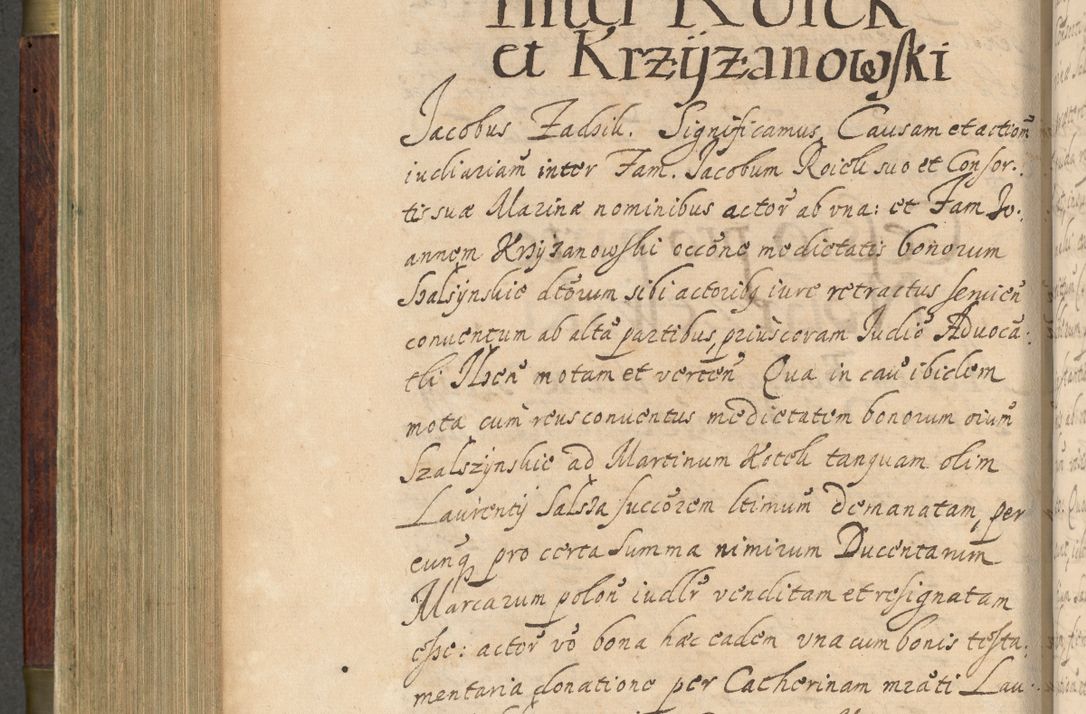 Inter Roick
et Krzÿzanowski
Jacobus Zadsik. Significamus, Causam et actionẽ
iudiariam̃ inter Fam. Jacobum Roick suo et Consor-
tis suæ Marinæ nominibus actor̃ ab vna: et Fam Jo-
annem Krzÿzanowski occõne medietatis bonorum
Szalsÿnskie dtõrum sibi actoribq iure retractus servien̄
conventum ab altã partibus, priũs coram Judiõ Advocã-
tli Ilzen̄ motam et verten̄ Qua in cau̇ ibidem
mota cum̃ reus conventus medietatem bonorum oium̃
Szalszÿnskie ad Martinum Kotek tanquam olim
Laurentÿ Salssa succõrem ltimum̃ demanatam, per
eunq, pro certa summa nimirum Ducentarum
Marcarum polon̄ iudllr̃ venditam et resignatam
esse: actor̃ võ bona hæc eadem vna cum bonis testa-
mentaria donatione per Catherinam mrãti Lau-